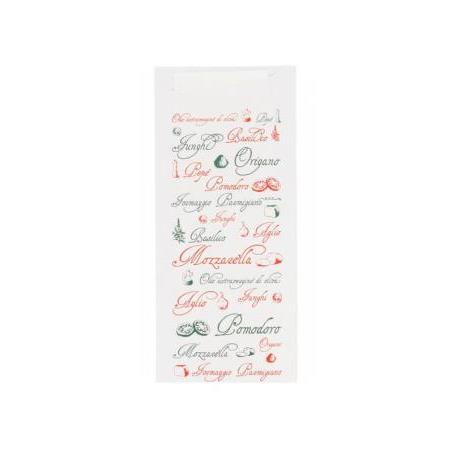 Olio extravergine di oliva Pepe
Funghi Basilico
Origano
Pepe
Pomodoro
Formaggio Parmigiano
Funghi
Basilico Aglio
Mozzarella
Olio extravergine di oliva
Aglio Funghi
Pomodoro
Origano
Mozzarella
Formaggio Parmigiano